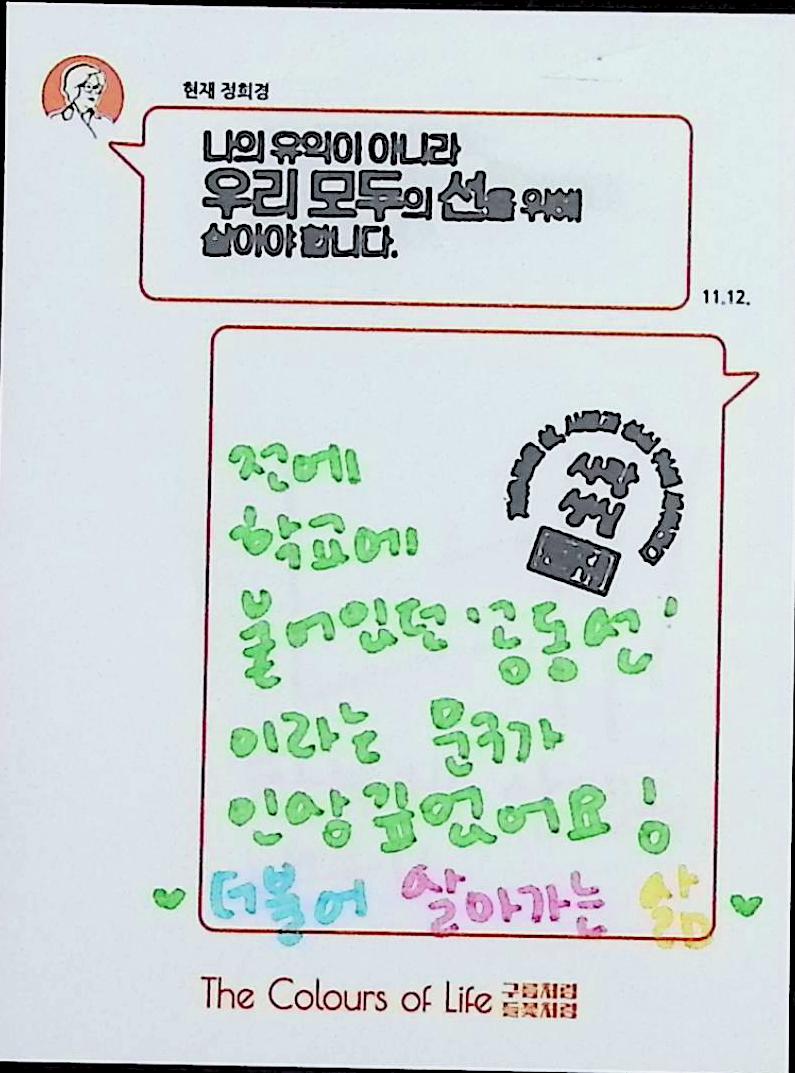 현재 정희경
나의 유익이 아니라
우리 모두의 선을 위해
살아야 합니다.
11.12.
전에
학교에
붙어있던 '공동선'
이라는 문구가
인상깊었어요!
더불어 살아가는 삶
The Colours of Life 구름처럼
들꽃처럼